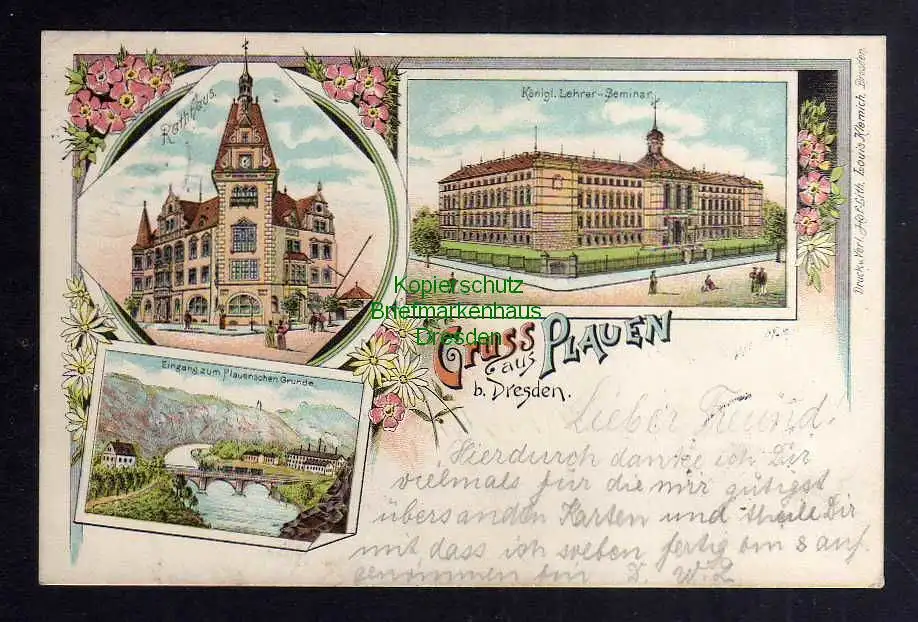 Rathhaus.
Königl. Lehrer-Seminar.
Druck u. Verl. Hof. Lith. Louis Klemich, Dresden.
Kopierschutz
Briefmarkenhaus
Dresden
Gruss
aus
PLAUEN
b. Dresden.
Eingang zum Plauenschen Grunde.
Lieber Freund!
Hierdurch danke ich Dir
vielmals für die mir gütigst
übersanden Karten und theile Dir
mit dass ich soeben fertig bin 8 auf
genommen bin D. W. L